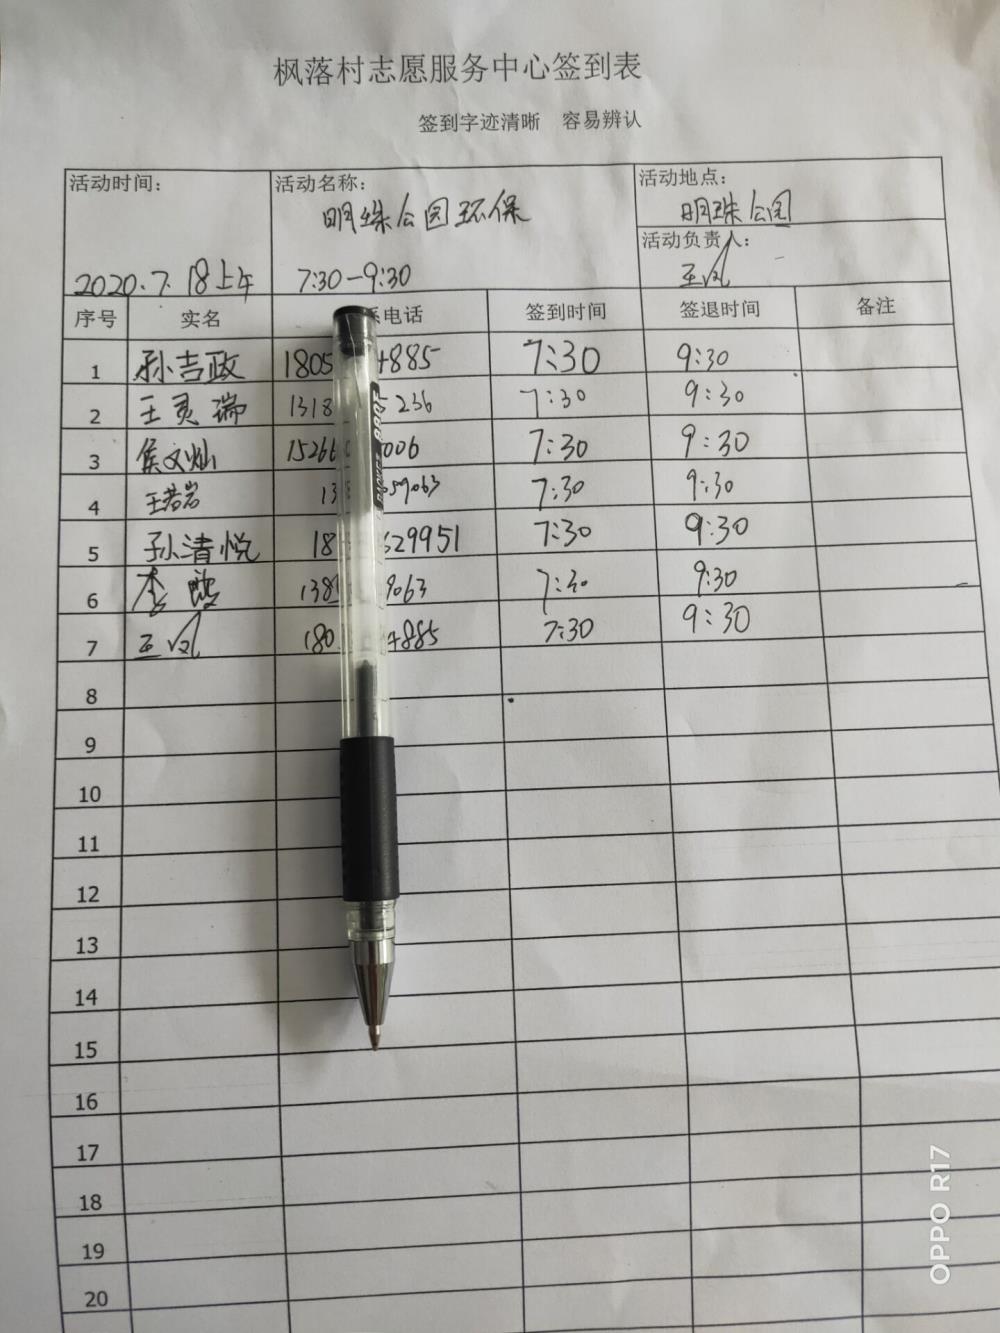 枫落村志愿服务中心签到表
签到字迹清晰 容易辨认
活动时间： 活动名称： 活动地点：
明珠公园环保 明珠公园
活动负责人：
2020.7.18上午 7:30-9:30 王凤
序号 实名 系电话 签到时间 签退时间 备注
1 孙吉政 1805 4885 7:30 9:30
2 王灵瑞 1318 236 7:30 9:30
3 侯文灿 15266 006 7:30 9:30
4 王若岩 13 59063 7:30 9:30
5 孙清悦 18 29951 7:30 9:30
6 李 138 9063 7:30 9:30
7 王凤 180 4885 7:30 9:30
8
9
10
11
12
13
14
15
16
17
18
19
20
OPPO R17